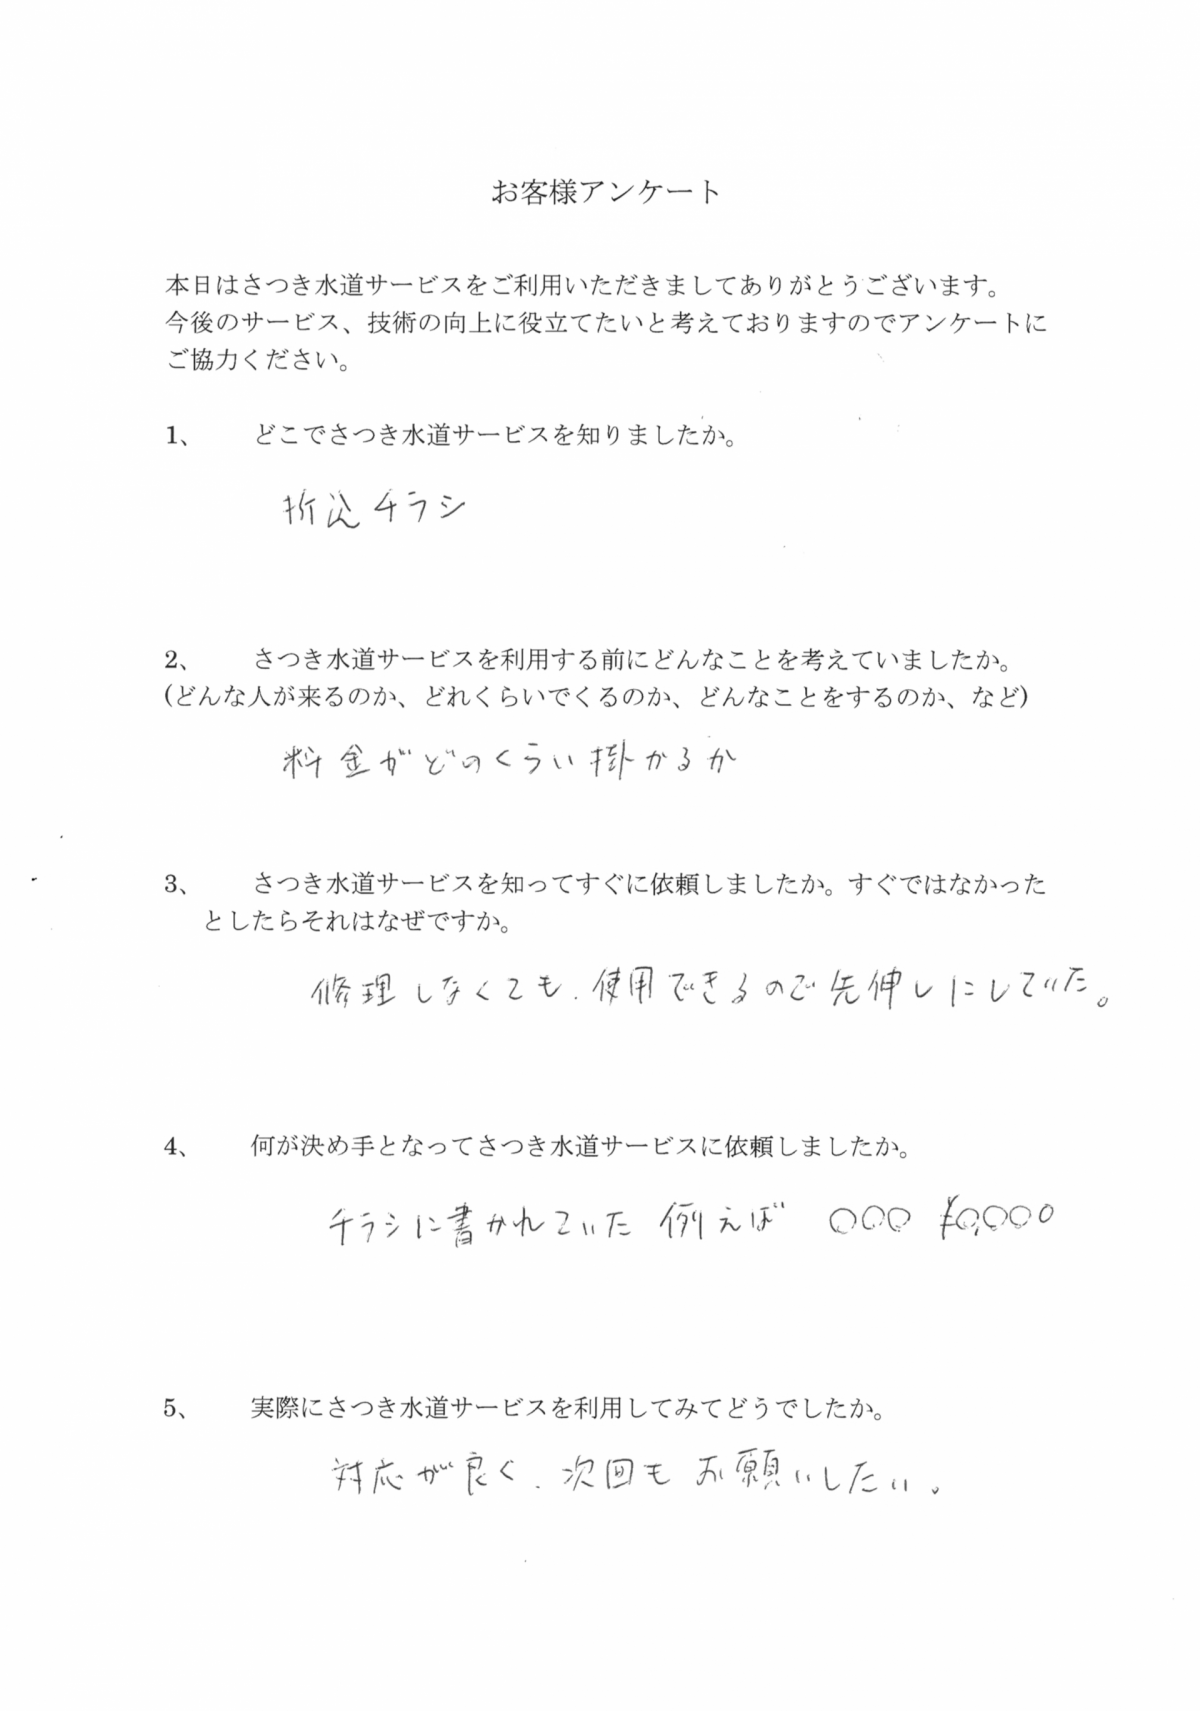 お客様アンケート
本日はさつき水道サービスをご利用いただきましてありがとうございます。
今後のサービス、技術の向上に役立てたいと考えておりますのでアンケートに
ご協力ください。
1、 どこでさつき水道サービスを知りましたか。
折込チラシ
2、 さつき水道サービスを利用する前にどんなことを考えていましたか。
(どんな人が来るのか、どれくらいでくるのか、どんなことをするのか、など)
料金がどのくらい掛かるか
3、 さつき水道サービスを知ってすぐに依頼しましたか。すぐではなかった
としたらそれはなぜですか。
修理しなくても、使用できるので先伸しにしていた。
4、 何が決め手となってさつき水道サービスに依頼しましたか。
チラシに書かれていた 例えば 〇〇〇 ¥0,000
5、 実際にさつき水道サービスを利用してみてどうでしたか。
対応が良く、次回もお願いしたい。